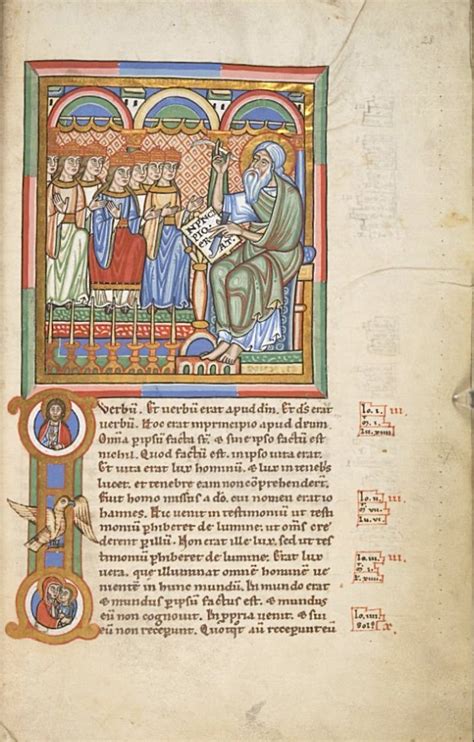 verbū. Et verbū erat apud dm̄. Et dš erat
verbū. Hoc erat inprincipio apud deum.
Omīa p ipsū facta st̄. & sine ipso factū est
nichil. Quod factū est. in ipso vita erat.
Et vita erat lux hominū. & lux in tenebris
lucet. et tenebre eam non cōprehenderunt.
Fuit homo missus a deo. cui nomen erat io
hannes. Hic venit in testimoniū ut testi
moniū phiberet de lumine. ut om̄s cre
derent p illū. Non erat ille lux. sed ut tes
timoniū phiberet de lumine. Erat lux
vera. que illuminat omnē hominē ve
nientē in hunc mundū. In mundo erat
& mundus p ipsū factus est. & mundus
eū non cognovit. In ppria venit. & sui
eū non receperunt. Quotqt aū receperunt eū
Io. i. iii.
Io. ii.
lu. vi.
Io. iii. iii.
Io. iiii
x